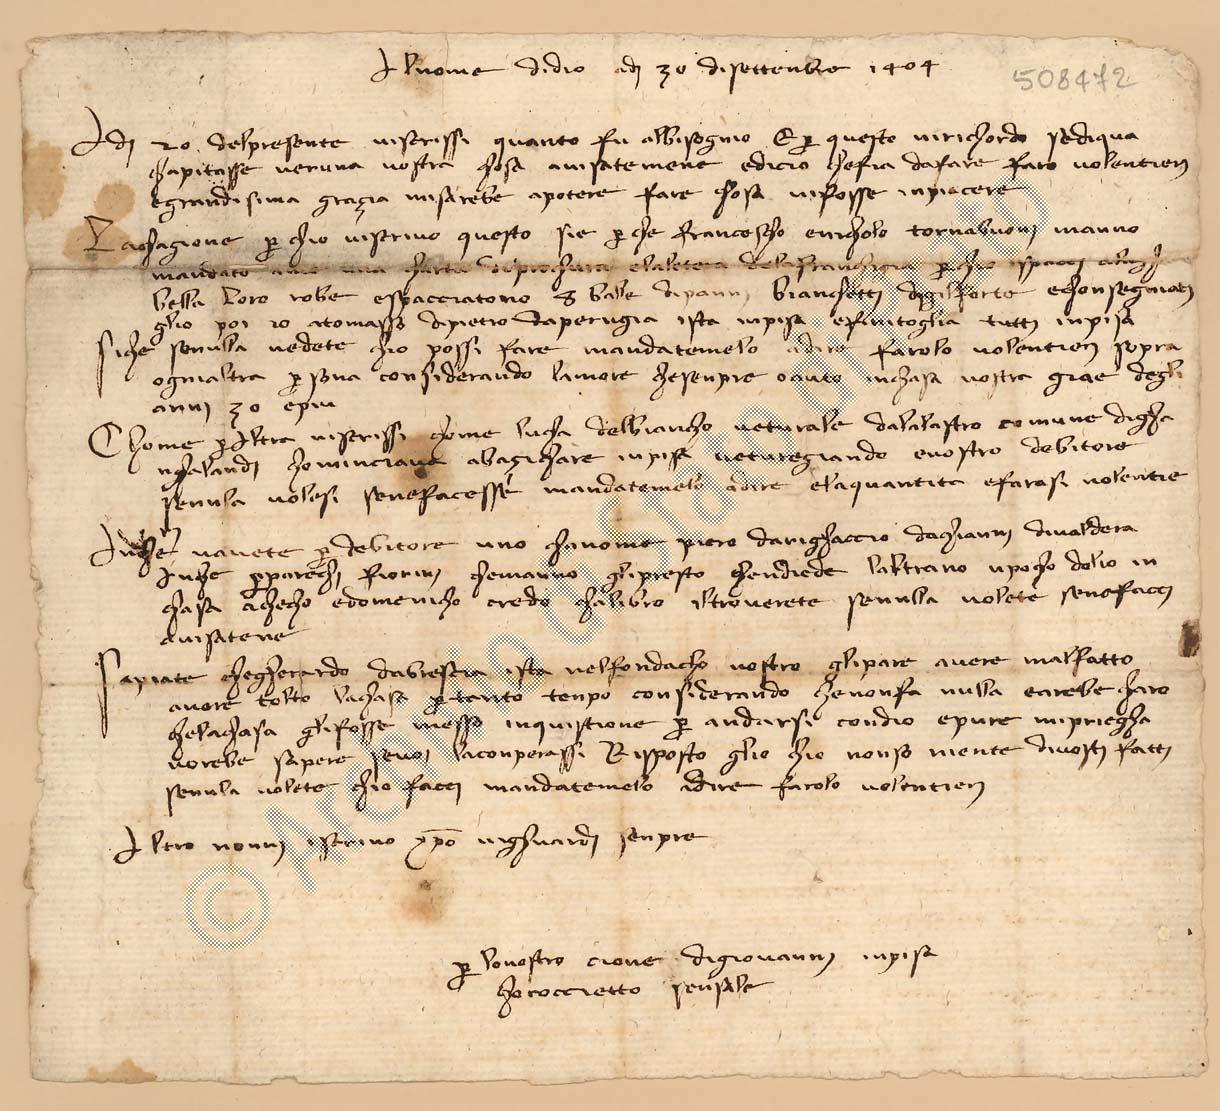 Al nome didio adj 30 disettenbre 1404
508472
Adj 20 delpresente viscrissi quanto fu albisogno E per questo virichordo sediqua
chapitasse veruna vostra chosa avisatemene edicio chefia dafare faro volentierj
egrandisima grazia misarebe apotere fare chosa vifosse inpiacere
Lachagione per chio viscrivo questo sie per che francescho enicholo tornabuonj manno
mandato una charta diprochura elaletera delafranchigia per chio ispacci
bella loro robe espacciatono 8 balle dipannj bianchetti dighilforte echonsegniatj
glio poi 20 atomasso dipietro daperugia ista inpisa efinitoglia tuttj inpisa
Siche senulla vedete chio possi fare mandatemelo adire farolo volentierj sopra
ognialtra persona considerando lamore chesenpre oauto inchasa vostra gia e degli
annj 30 epiu
E chome per altra viscrissi chome lucha delbiancho veturale dalalastro comune digha
nghalandj chominciava abazichare inpisa veturegiando evostro debitore
senulla volesi senefacesse mandatemelo adire elaquantita efarasi volentie
Anche navete per debitore uno chanome piero darighaccio dachiannj divaldera
Anche per parechj fiorinj chemanno glipresto chendiede laltrano upocho dolio in
chasa checho edomenicho credo chalibro iltroverete senulla volete senefaccj
avisatene
Sapiate chegherardo dabrescia ista nelfondacho vostro glipare avere malfatto
avere tolto lachasa per tanto tenpo considerando chenonfa nulla earebe charo
chelachasa glifosse messa inquistione per andarsi condio epure mipriegha
vorebe sapere sevoi laconperassi Risposto glio chio nonso niente divostri fattj
senulla volete chio faccj mandatemelo adire farolo volentierj
Altro nonvj iscrivo χρο vighuardj senpre
per lovostro cione digiovannj inpisa
chococcietto sensale
© Archivio di Stato di Prato